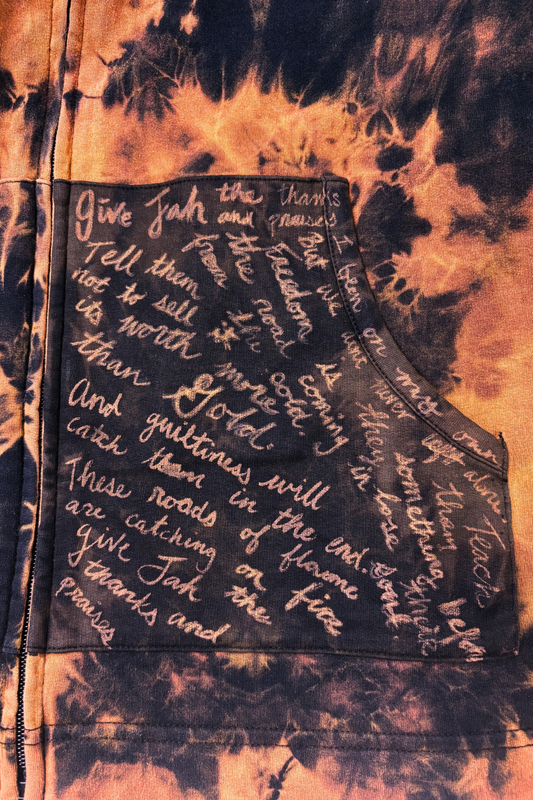 Give Jah the thanks
and praises
Tell them
not to sell it
its worth more
than Gold.
And guiltiness will
catch them in the end.
These roads of flame
are catching on fire
Give Jah the
thanks and
praises
I been on my own
from the
the road cold.
Freedom is coming in
But we aint never left alone.
Teach
them
something before
they lose their soul.